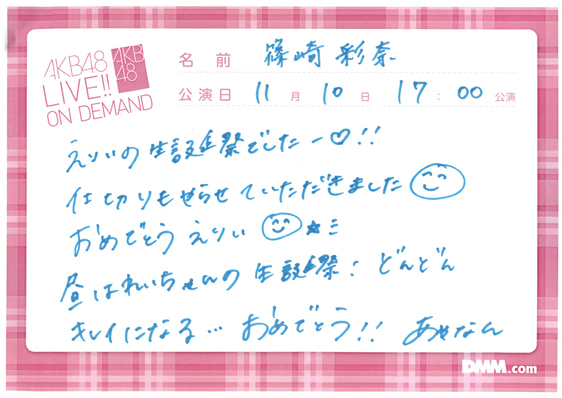 AKB48
LIVE!!
ON DEMAND
AKB
48
名前 篠崎彩奈
公演日 11月10日 17:00公演
えりぃの生誕祭でしたー♡!!
仕切りもやらせていただきました
おめでとうえりぃ ☆ミ
昼はれいちゃんの生誕祭! どんどん
キレイになる… おめでとう!! あやなん
DMM.com